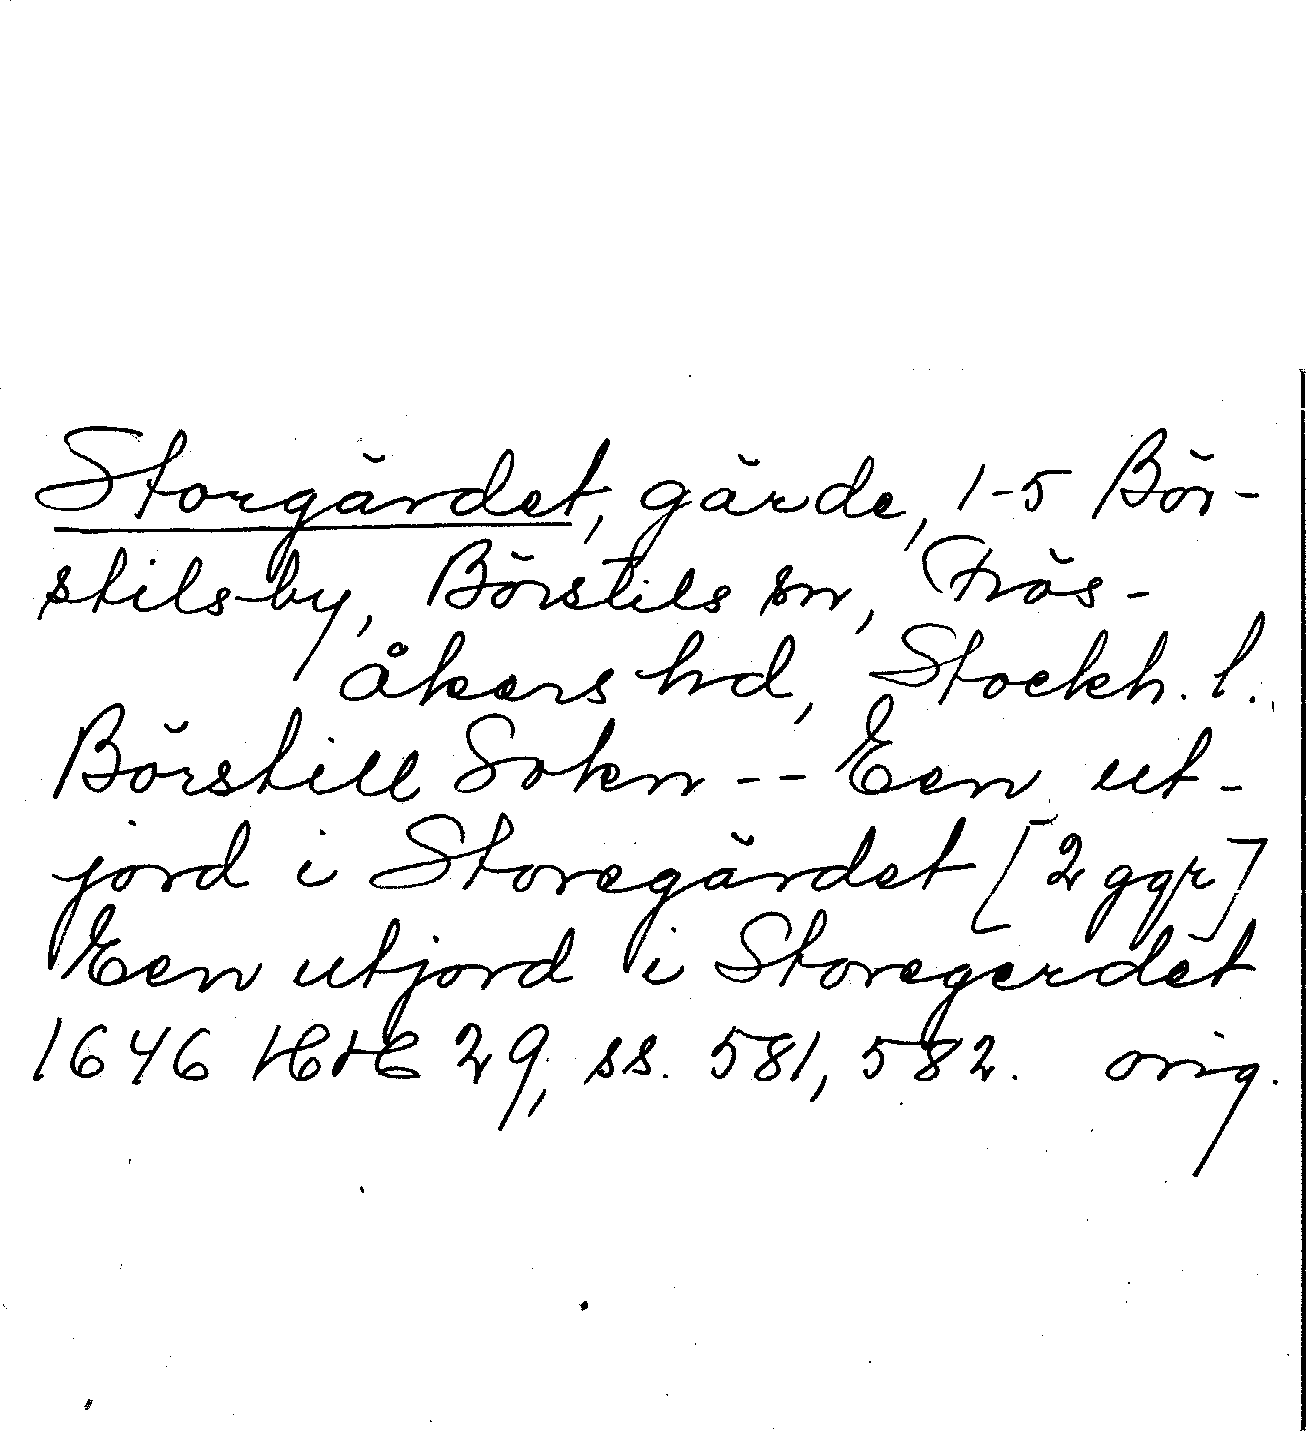 Storgärdet, gärde, 1-5 Bör-
stils-by, Börstils sn, Frös-
åkers hd, Stockh. l.
Börstill Sokn -- Een ut-
jord i Storegärdet [2 ggr]
Een utjord i Storegerdet
1646 29, ss. 581, 582. orig.